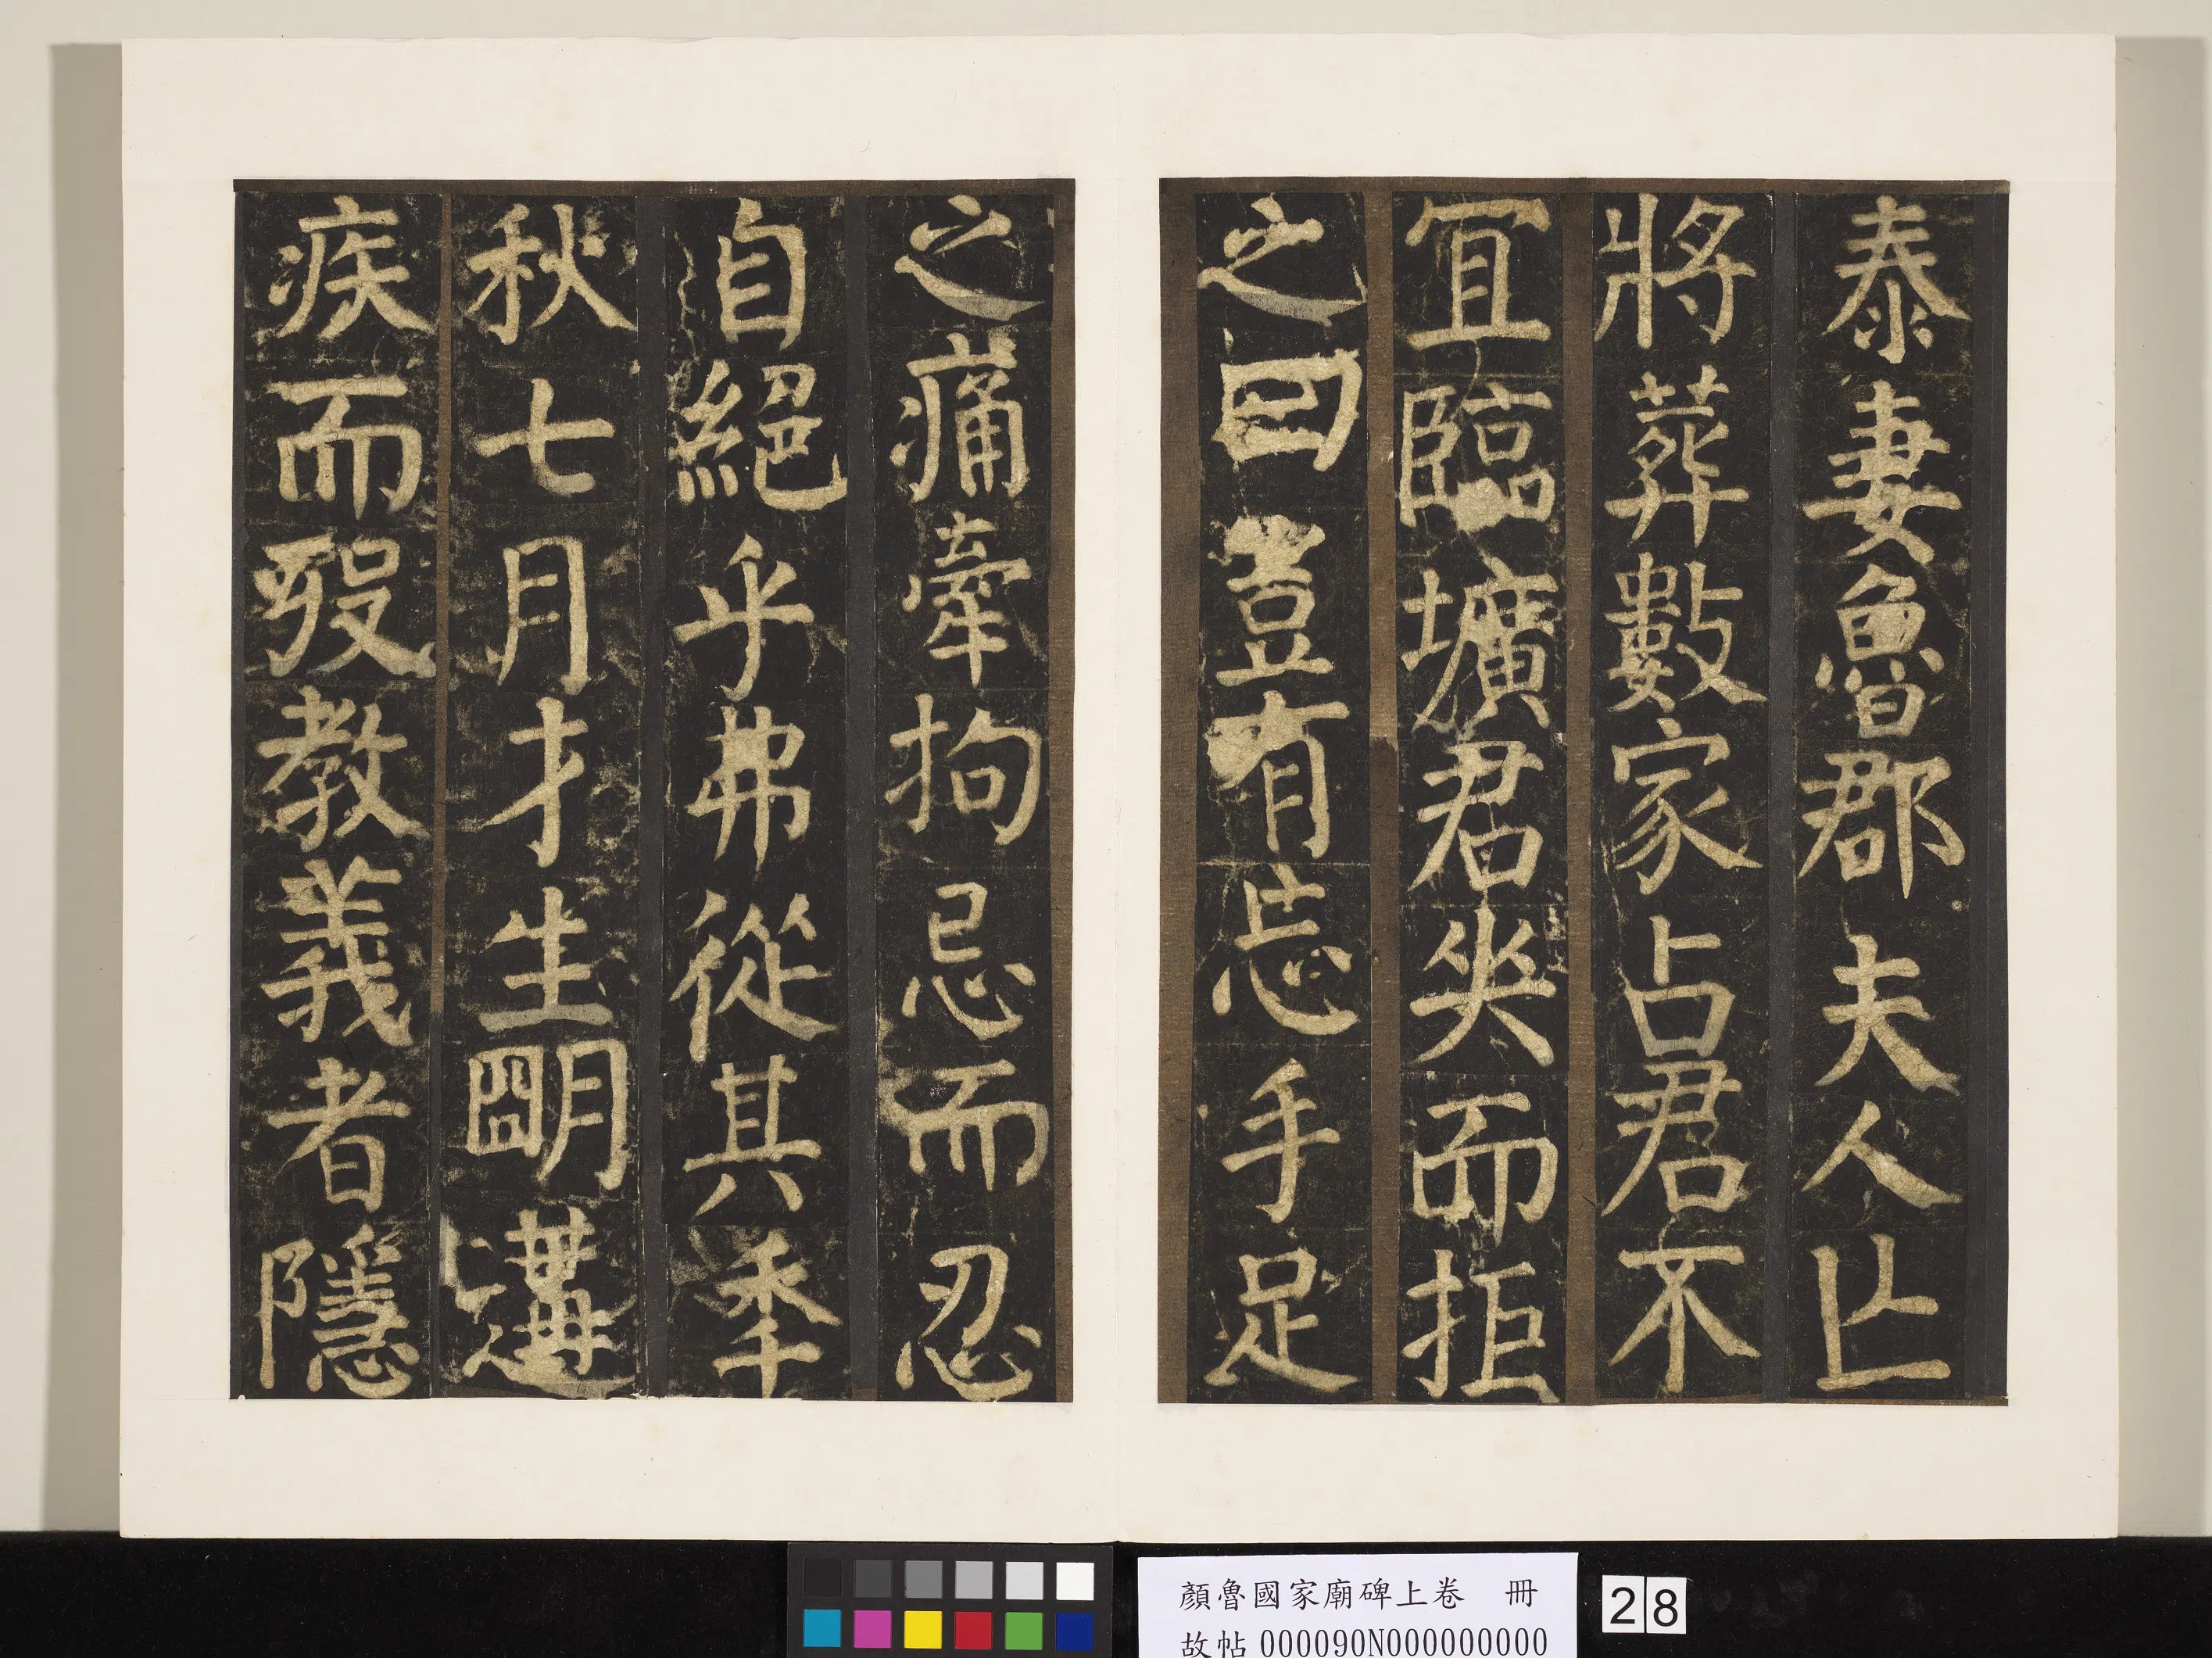 泰妻魯郡夫人亡
將葬數家占君不
冝臨壙君哭而拒
之曰豈有忘手足
之痛牽拘忌而忍
自絕乎弗從其季
秋七月才生朙遘
疾而歿教義者隱
顏魯國家廟碑上卷 冊
故帖000090N000000000
28